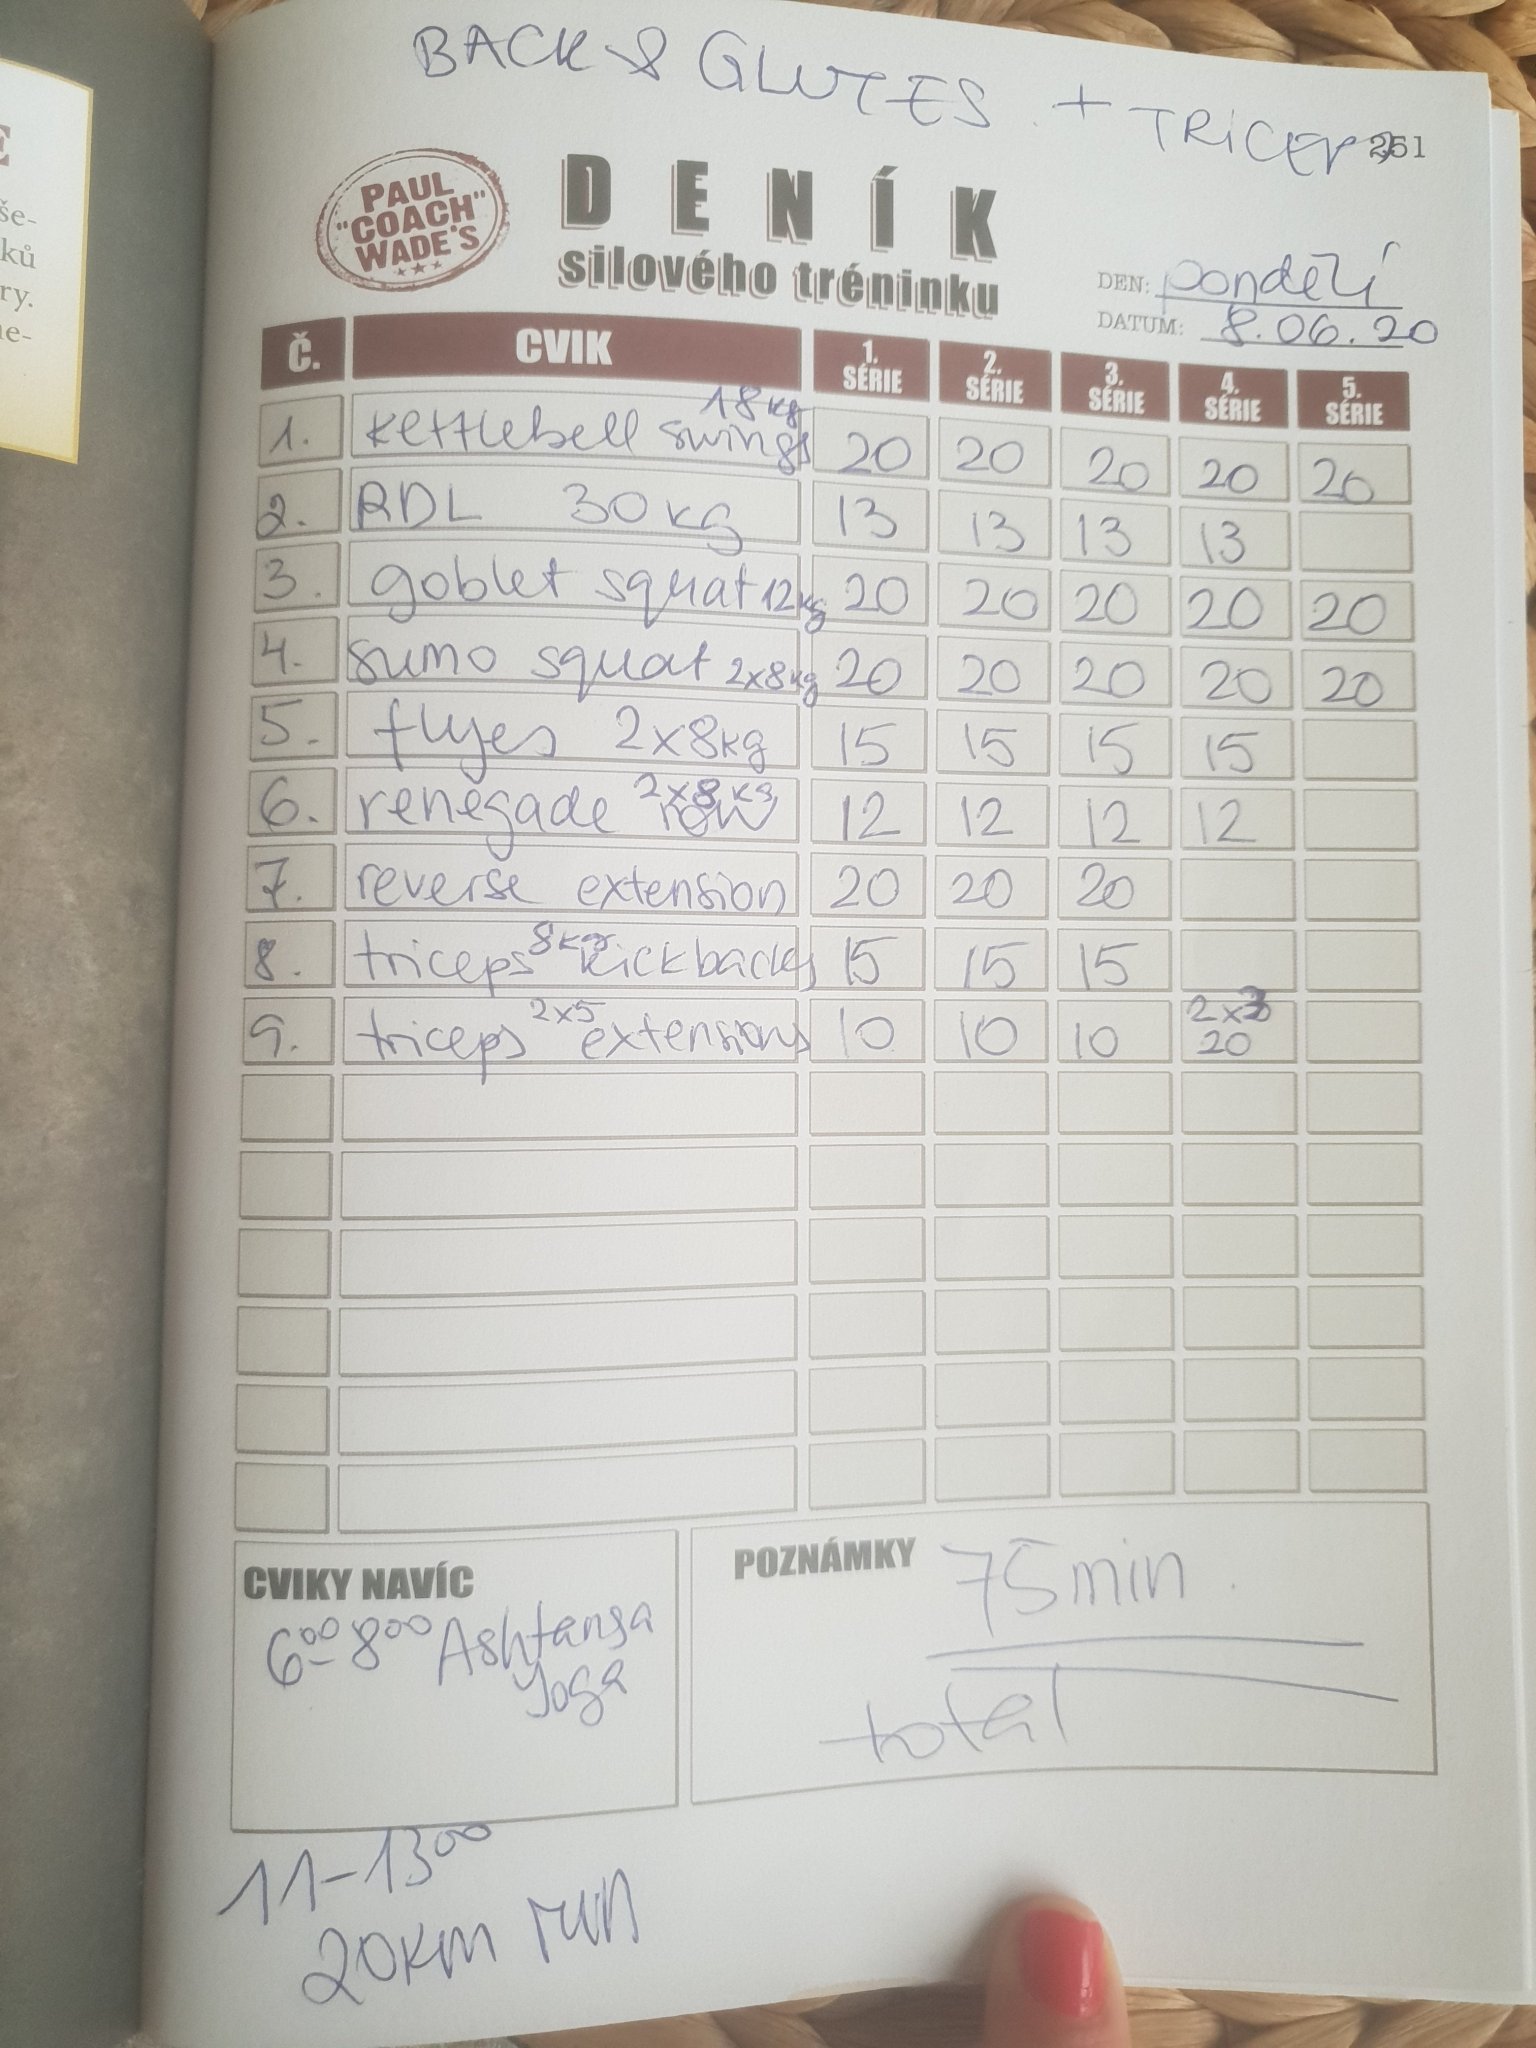 BACK & GLUTES + TRICEPS
E
še-
ků
ry.
ne-
251
PAUL
"COACH"
WADE'S
DENÍK
silového tréninku
DEN: pondělí
DATUM: 8.06.20
Č. CVIK 1. SÉRIE 2. SÉRIE 3. SÉRIE 4. SÉRIE 5. SÉRIE
1. kettlebell swings 18kg 20 20 20 20 20
2. RDL 30kg 13 13 13 13
3. goblet squat 12kg 20 20 20 20 20
4. sumo squat 2x8kg 20 20 20 20 20
5. flyes 2x8kg 15 15 15 15
6. renegade row 2x8kg 12 12 12 12
7. reverse extension 20 20 20
8. triceps 8kg kickbacks 15 15 15
9. triceps 2x5 extensions 10 10 10 20
CVIKY NAVÍC
600-800 Ashtanga
Joga
POZNÁMKY
75 min
total
11-1300
20km run